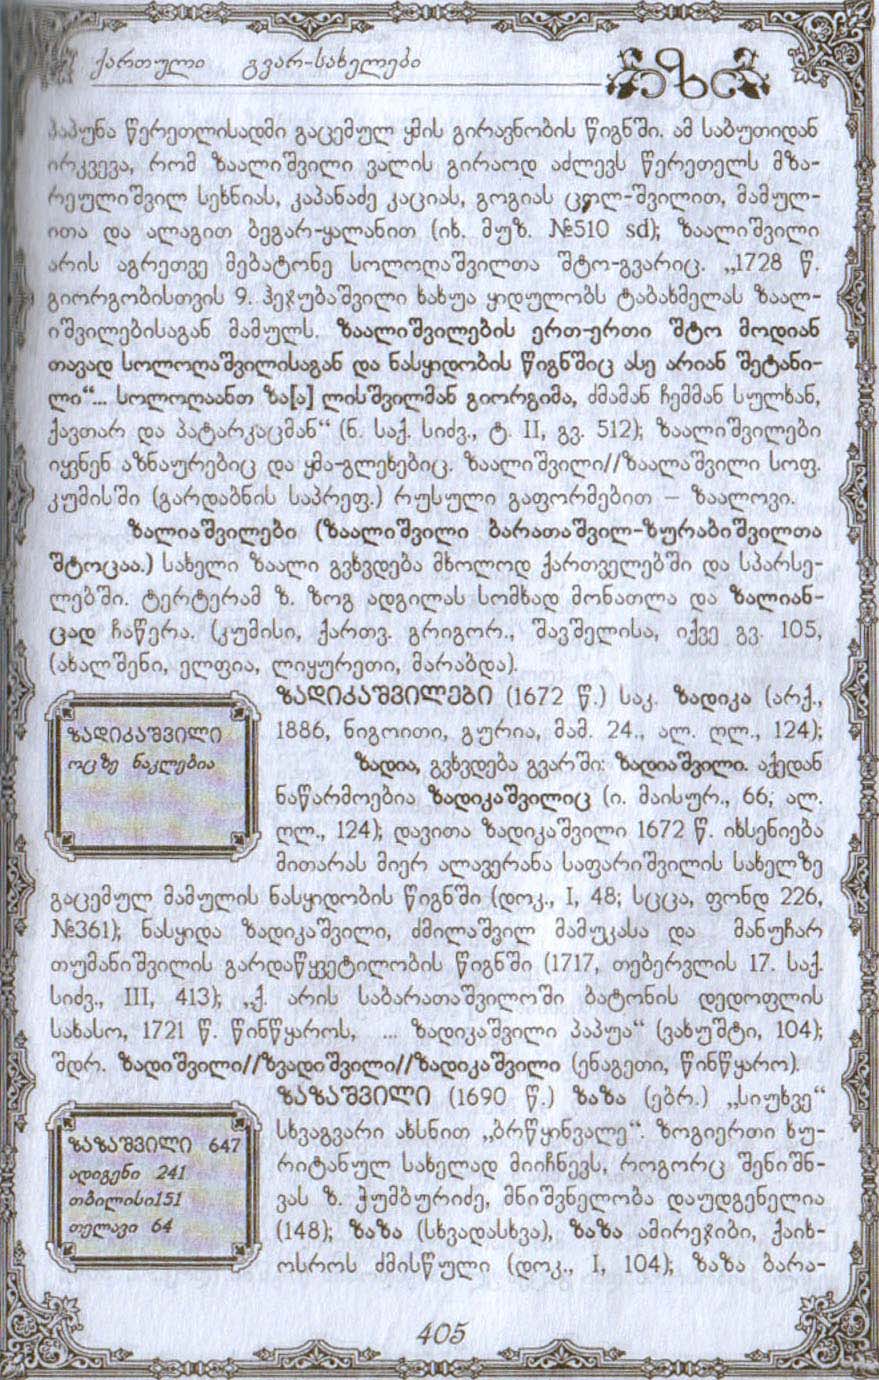 ქართული გვარ-სახელები
პაპუნა წერეთლისადმი გაცემულ ყმის გირავნობის წიგნში. ამ საბუთიდან
ირკვევა, რომ ზაალიშვილი ვალის გირაოდ აძლევს წერეთელს მზა-
რეულიშვილ სეხნიას, კაპანაძე კაციას, გოგიას ცოლ-შვილით, მამულ-
ითა და ალაგით ბეგარ-ყალანით (იხ. მუზ. №510 sd); ზაალიშვილი
არის აგრეთვე მებატონე სოლოღაშვილთა შტო-გვარიც. „1728 წ.
გიორგობისთვის 9. ჰეჯუბაშვილი ხახუა ყიდულობს ტაბახმელას ზაალ-
იშვილებისაგან მამულს. ზაალიშვილების ერთ-ერთი შტო მოდიან
თავად სოლოღაშვილისაგან და ნასყიდობის წიგნშიც ასე არიან შეტანი-
ლი“... სოლოღაანთ ზა[ა] ლისშვილმან გიორგიმა, ძმამან ჩემმან სულხან,
ქავთარ და პატარკაცმან“ (ნ. საქ. სიძვ., ტ. II, გვ. 512); ზაალიშვილები
იყვნენ აზნაურებიც და ყმა-გლეხებიც. ზაალიშვილი//ზაალაშვილი სოფ.
კუმისში (გარდაბნის საპრეფ.) რუსული გაფორმებით – ზაალოვი.
ზალიაშვილები (ზაალიშვილი ბარათაშვილ-ზურაბიშვილთა
შტოცაა.) სახელი ზაალი გვხვდება მხოლოდ ქართველებში და სპარსე-
ლებში. ტერტერამ ზ. ზოგ ადგილას სომხად მონათლა და ზალიან-
ცად ჩაწერა. (კუმისი, ქართვ. გრიგორ., შავშელისა, იქვე გვ. 105,
(ახალშენი, ელფია, ლიყურეთი, მარაბდა).
ზადიკაშვილი
ოცზე ნაკლებია
ზადიკაშვილები (1672 წ.) საკ. ზადიკა (არქ.,
1886, ნიგოითი, გურია, მამ. 24., ალ. ღლ., 124);
ზადია, გვხვდება გვარში: ზადიაშვილი. აქედან
ნაწარმოებია ზადიკაშვილიც (ი. მაისურ., 66; ალ.
ღლ., 124); დავითა ზადიკაშვილი 1672 წ. იხსენიება
მითარას მიერ ალავერანა საფარიშვილის სახელზე
გაცემულ მამულის ნასყიდობის წიგნში (დოკ., I, 48; სცცა, ფონდ 226,
№361); ნასყიდა ზადიკაშვილი, ძმილაშვილ მამუკასა და მანუჩარ
თუმანიშვილის გარდაწყვეტილობის წიგნში (1717, თებერვლის 17. საქ.
სიძვ., III, 413); „ქ. არის საბარათაშვილოში ბატონის დედოფლის
სახასო, 1721 წ. წინწყაროს, ... ზადიკაშვილი პაპუა“ (ვახუშტი, 104);
შდრ. ზადიშვილი//ზვადიშვილი//ზადიკაშვილი (ენაგეთი, წინწყარო).
ზაზაშვილი 647
ადიგენი 241
თბილისი151
თელავი 64
ზაზაშვილი (1690 წ.) ზაზა (ებრ.) „სიუხვე“
სხვაგვარი ახსნით „ბრწყინვალე“. ზოგიერთი ხუ-
რიტანულ სახელად მიიჩნევს, როგორც შენიშნ-
ვას ზ. ჭუმბურიძე, მნიშვნელობა დაუდგენელია
(148); ზაზა (სხვადასხვა), ზაზა ამირეჯიბი, ქაიხ-
ოსროს ძმისწული (დოკ., I, 104); ზაზა ბარა-
405